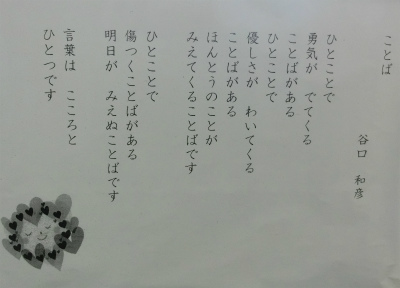 ことば
谷口 和彦
ひとことで
勇気が でてくる
ことばがある
ひとことで
優しさが わいてくる
ことばがある
ほんとうのことが
みえてくることばです
ひとことで
傷つくことばがある
明日が みえぬことばです
言葉は こころと
ひとつです